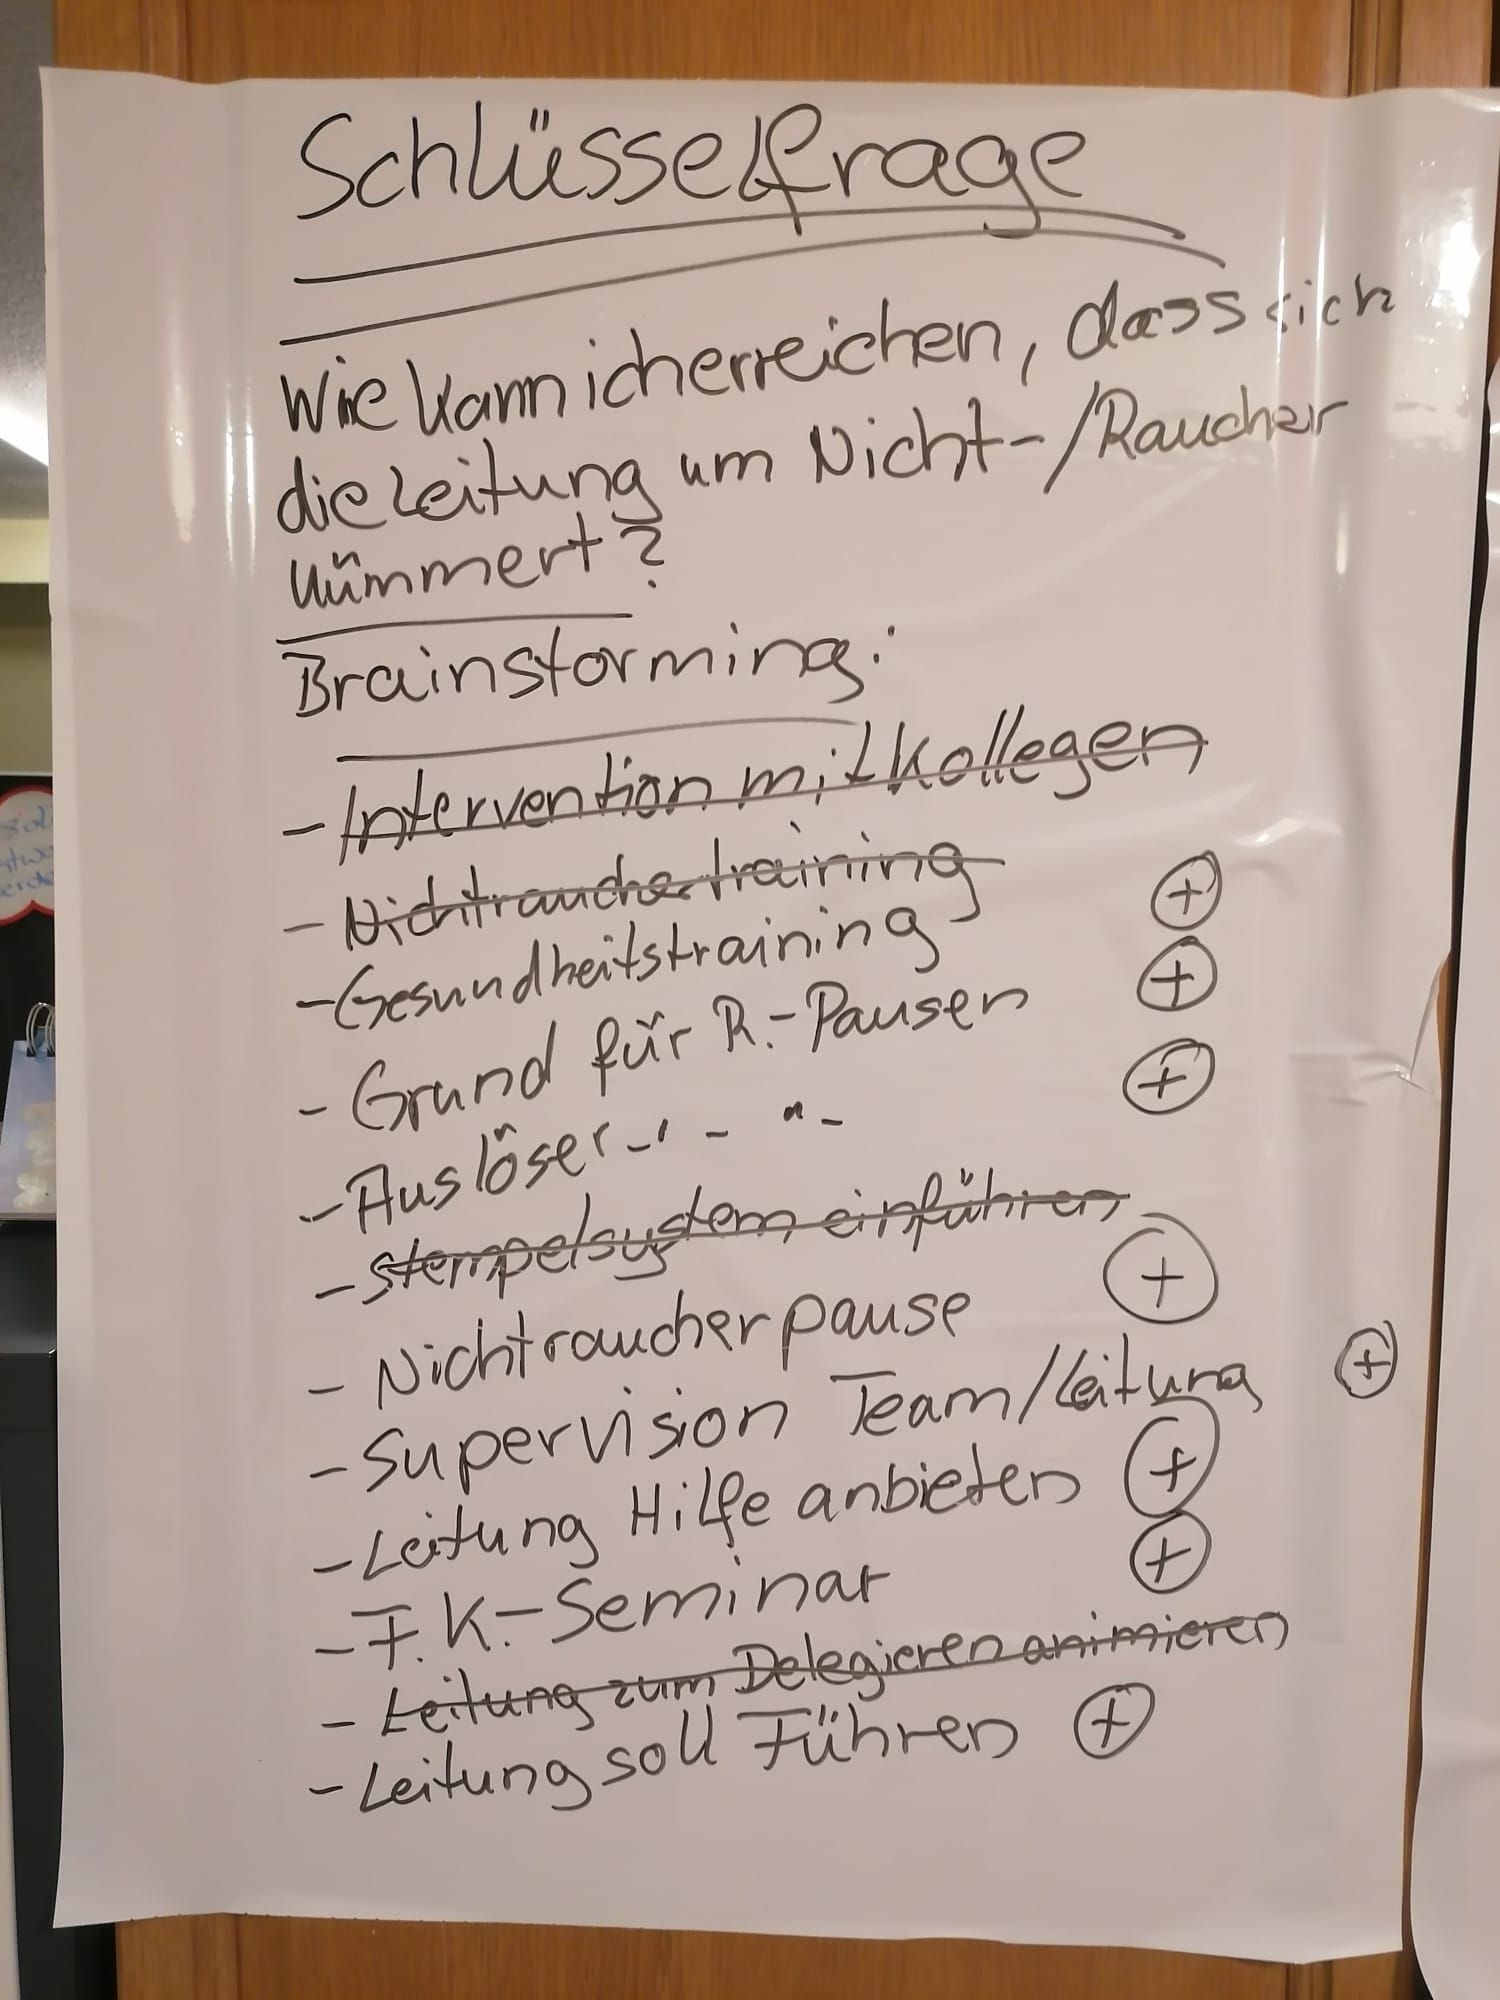 Schlüsselfrage
Wie kann ich erreichen, dass sich
die Leitung um Nicht-/Raucher
kümmert?
Brainstorming:
- Intervention mit Kollegen
- Nichtrauchertraining
- Gesundheitstraining +
- Grund für R.-Pausen +
- Auslöser -"- -"- +
- Stempelsystem einführen
- Nichtraucherpause +
- Supervision Team/Leitung +
- Leitung Hilfe anbieten +
- F.K.-Seminar +
- Leitung zum Delegieren animieren
- Leitung soll Führen +